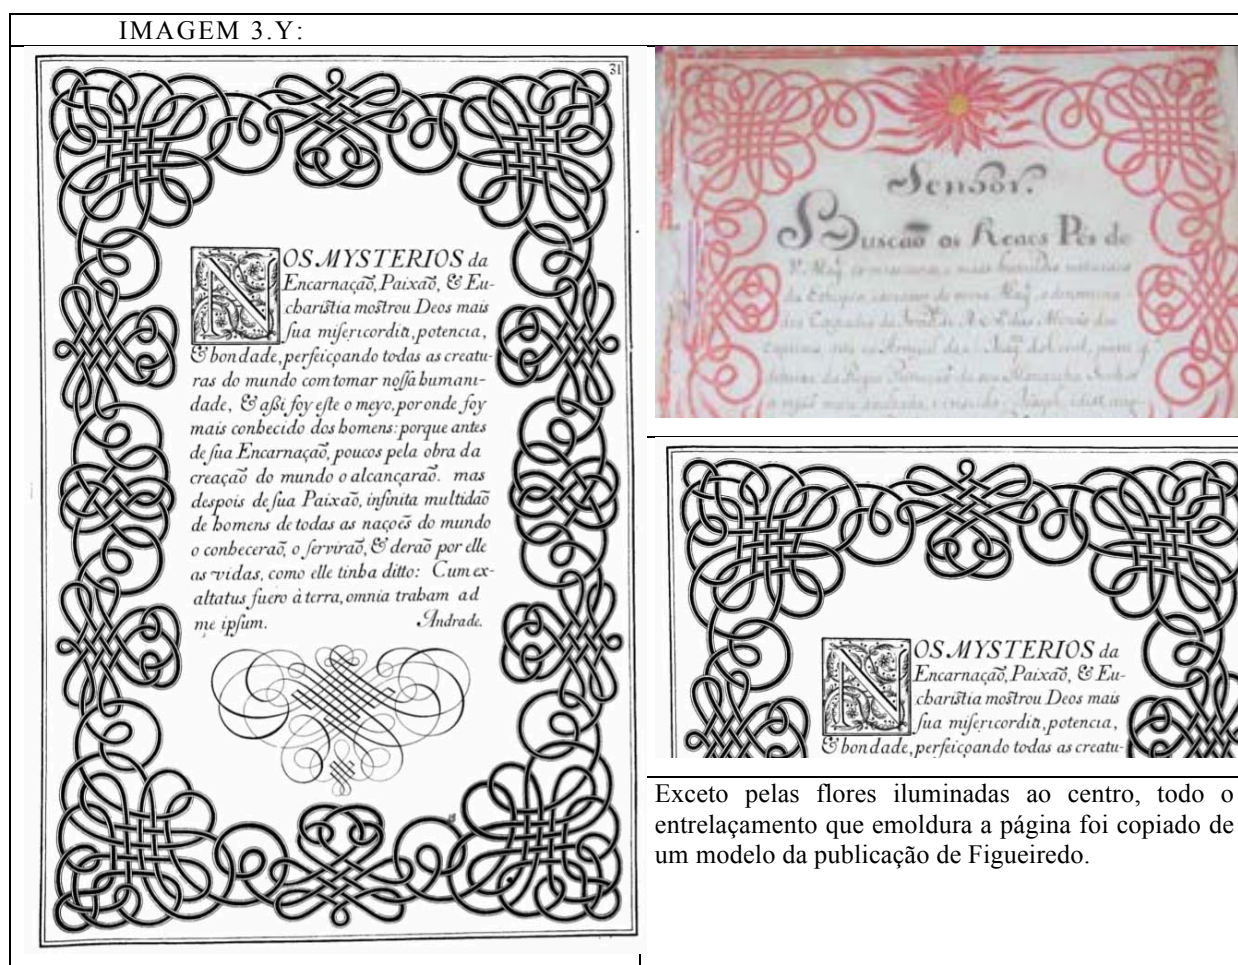 IMAGEM 3.Y:
31
NOS MYSTERIOS da
Encarnaçaõ, Paixaõ, & Eu-
chariſtia moſtrou Deos mais
ſua miſericordia, potencia,
& bondade, perfeiçoando todas as creatu-
ras do mundo com tomar noſſa humani-
dade, & aßi foy eſte o meyo, por onde foy
mais conhecido dos homens: porque antes
de ſua Encarnaçaõ, poucos pela obra da
creaçaõ do mundo o alcançaraõ. mas
despois de ſua Paixaõ, infinita multidaõ
de homens de todas as naçoẽs do mundo
o conheceraõ, o ſerviraõ, & deraõ por elle
as vidas, como elle tinha ditto: Cum ex-
altatus fuero à terra, omnia traham ad
me ipſum. Andrade.
Senhor.
Buscaõ os Reaes Pés de
NOS MYSTERIOS da
Encarnaçaõ, Paixaõ, & Eu-
chariſtia moſtrou Deos mais
ſua miſericordia, potencia,
& bondade, perfeiçoando todas as creatu-
Exceto pelas flores iluminadas ao centro, todo o
entrelaçamento que emoldura a página foi copiado de
um modelo da publicação de Figueiredo.